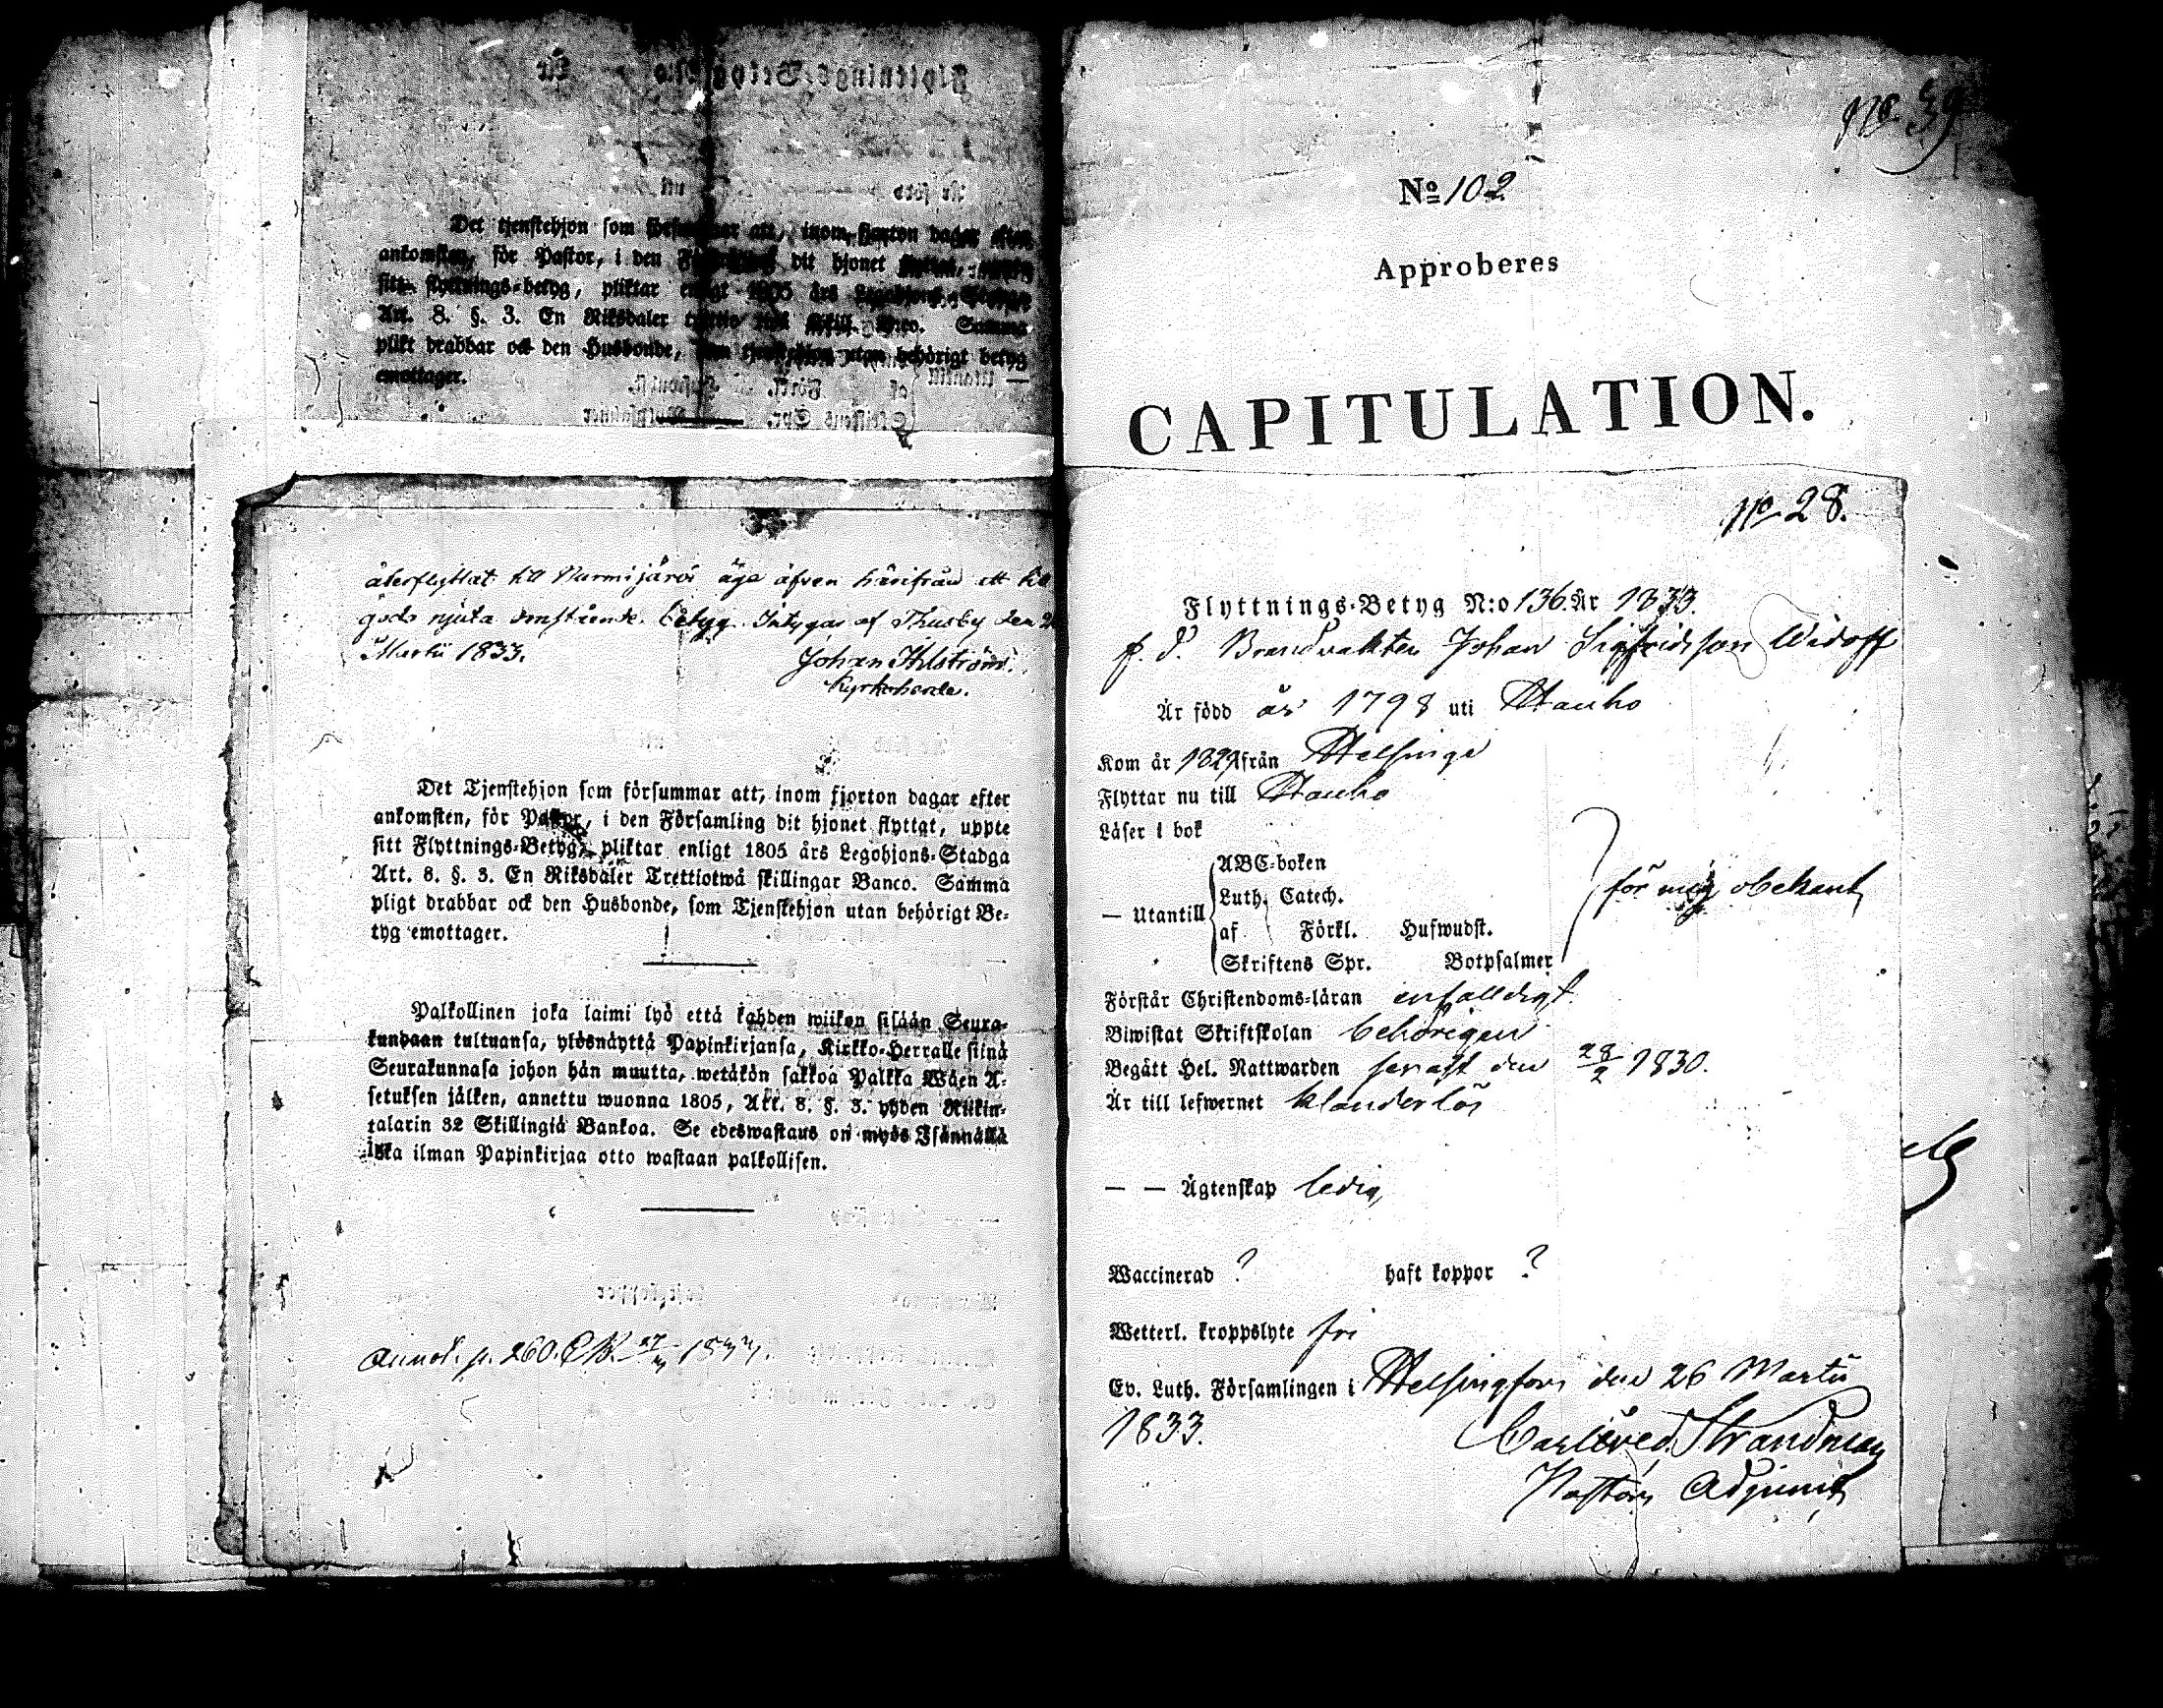 Det tjenstehjon som försummar att, inom fjorton dagar efter
ankomsten, för Pastor, i den dit hjonet
sitt flyttnings-betyg, pliktar enligt 1805 års Legohjons-Stadga
Art. 8. §. 3. En Riksdaler B:co. Samma
plikt drabbar ock den Husbonde, som tjenstehjon utan behörigt betyg
emottager.
återflyttat till Nurmijärvi äga äfven härifrån ett
goda njuta omstående betyg. Intygar af Thusby den
Martii 1833.
Johan Ahlström.
Kyrkoherde.
Det Tjenstehjon som försummar att, inom fjorton dagar efter
ankomsten, för Pastor, i den Församling dit hjonet flyttat, uppte
sitt Flyttnings-Betyg, pliktar enligt 1805 års Legohjons-Stadga
Art. 8. §. 3. En Riksdaler Trettiotwå skillingar Banco. Samma
pligt drabbar ock den Husbonde, som Tjenstehjon utan behörigt Be-
tyg emottager.
Palkollinen joka laimi lyö että kahden wiikon sisään Seura-
kundaan tultuansa, ylösnäyttä Papinkirjansa, Kirkko-Herralle siinä
Seurakunnasa johon hän muutta, wetäkön sakkoa Palkka Wäen A-
setuksen jälken, annettu wuonna 1805, Art. 8. §. 3. yhden Riikin-
talarin 32 Skillingiä Bankoa. Se edeswastaus on myös Isännällä
joka ilman Papinkirjaa otto wastaan palkollisen.
Annot. p. 260. 1833.
No 39
No 102
Approberes
CAPITULATION.
No 28.
Flyttnings-Betyg N:o 136. År 1833.
f. d. Brandvakten Johan Sigfridsson Widoff
Är född år 1798 uti Hauho
Kom år 1829 från Helsinge
Flyttar nu till Hauho
Läser i bok
ABC-boken
Luth. Catech.
— Utantill för mig obekant
af Förkl. Hufwudst.
Skriftens Spr. Botpsalmer
Förstår Christendoms-läran enfalldigt
Biwistat Skriftskolan behörigen
Begått Hel. Nattwarden senast den 28/2 1830.
Är till lefwernet klanderlös
— — Ägtenskap ledig
Waccinerad ? haft koppor ?
Wetterl. kroppslyte fri
Ev. Luth. Församlingen i Helsingfors den 26 Martii
1833.
Carl Fred. Strandman
Pastors Adjunct